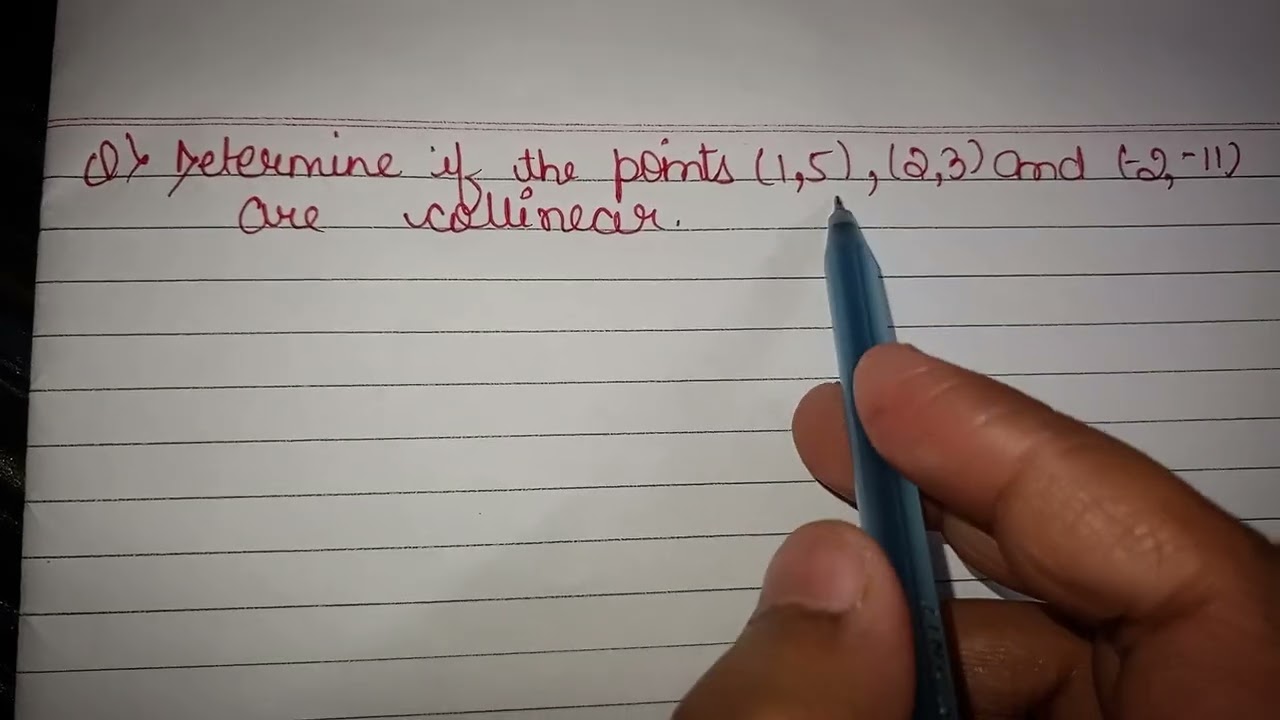 Q) Determine if the points (1,5), (2,3) and (-2,-11)
are collinear.